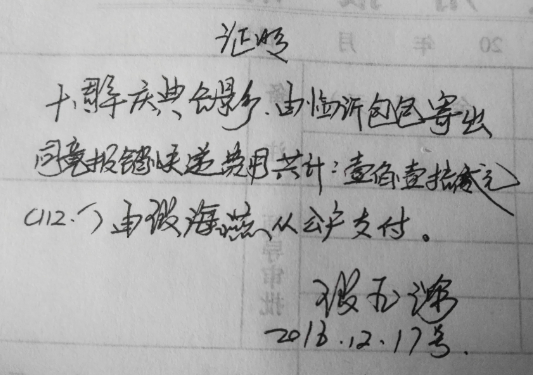 证明
十周年庆典合影乡.由临沂包包寄出
同意报销快递费用共计:壹佰壹拾贰元
(112.-)由段海燕从公户支付。
段玉
2013.12.17号.
20 年 月
导审批